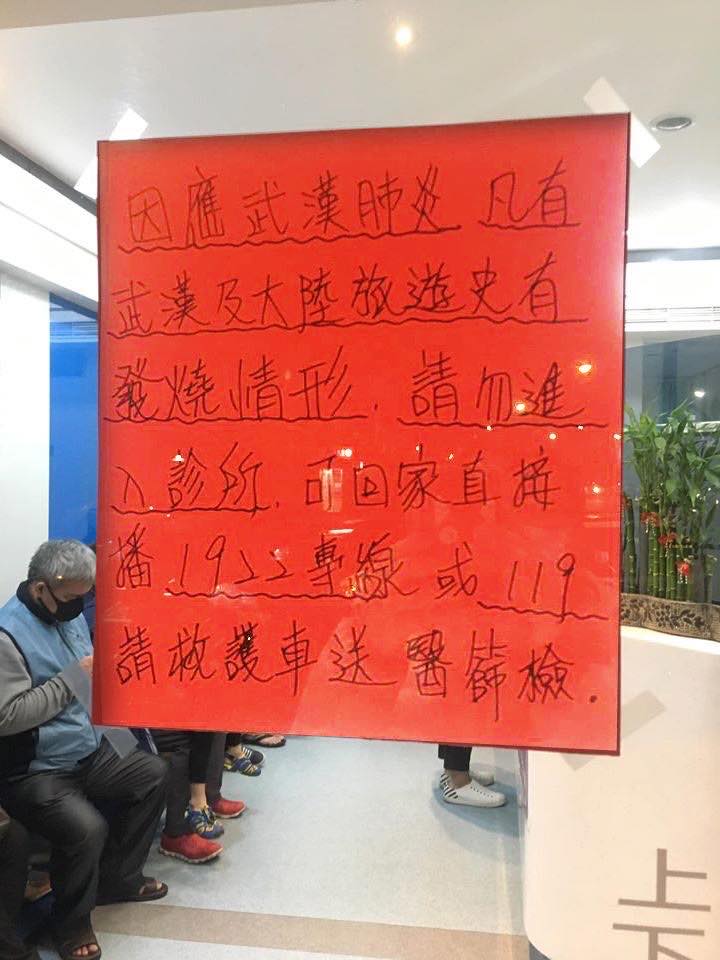 因應武漢肺炎 凡有
武漢及大陸旅遊史有
發燒情形.請勿進
入診所.可回家直接
播1922專線或119
請救護車送醫篩檢.
上
下